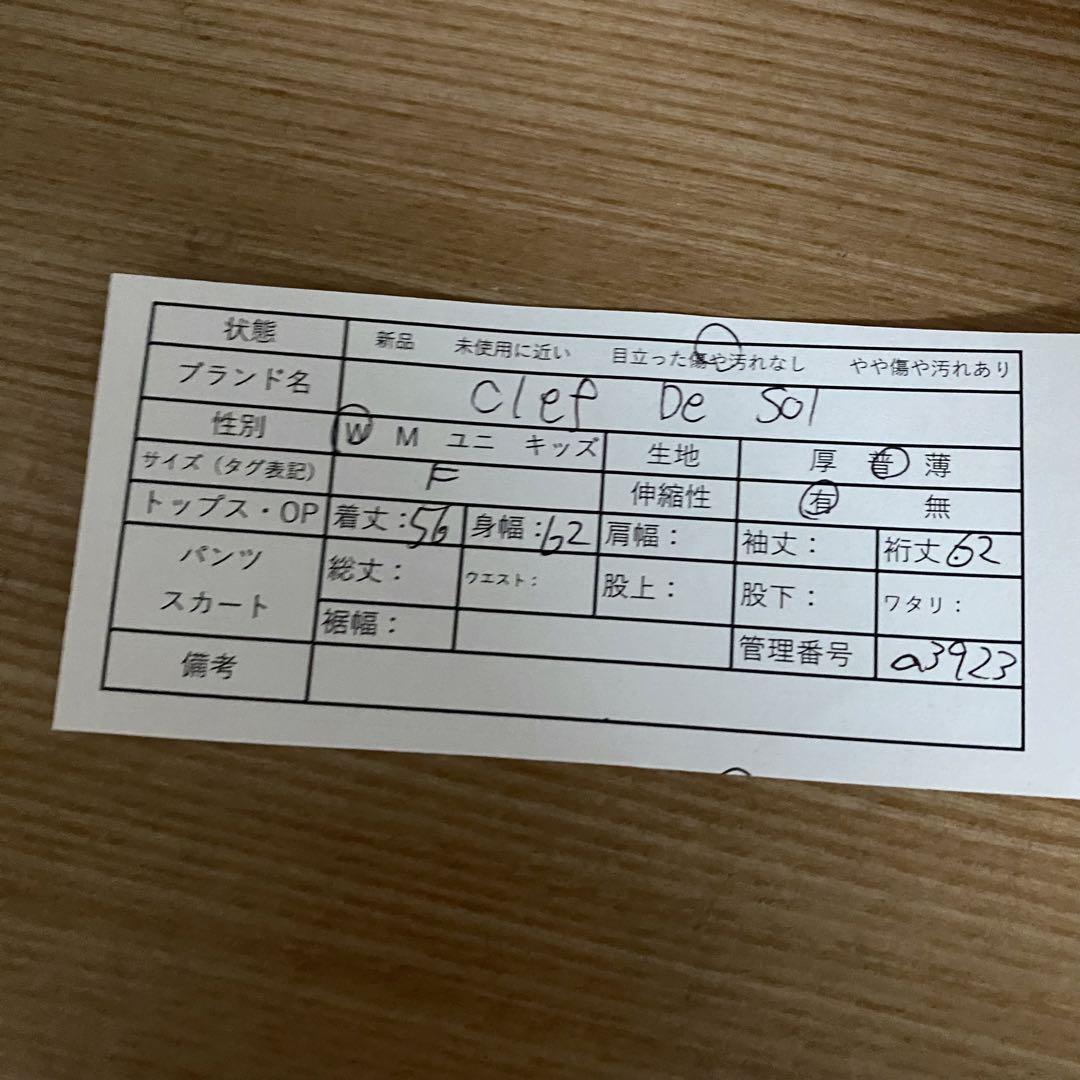 状態 新品 未使用に近い 目立った傷や汚れなし やや傷や汚れあり
ブランド名 Clef De Sol
性別 W M ユニ キッズ 生地 厚 普 薄
サイズ（タグ表記） F 伸縮性 有 無
トップス・OP 着丈：56 身幅：62 肩幅： 袖丈： 裄丈62
パンツ
スカート
総丈： ウエスト： 股上： 股下： ワタリ：
裾幅： 管理番号 a3923
備考